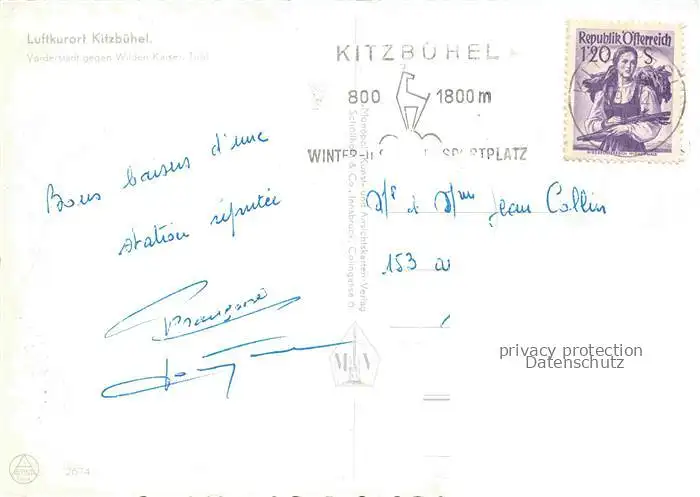 Luftkurort Kitzbühel.
Vorderstadt gegen Wilden Kaiser, Tirol
KITZBÜHEL
800 1800 m
WINTER- SPORTPLATZ
Republik Österreich
1'20 S
Bons baisers d'une
station réputée
Françoise
Mr & Mme Jean Collin
153 av
Monopol Kunst- und Ansichtskarten-Verlag
& Co., Innsbruck, Colingasse 6
M V
privacy protection
Datenschutz
2674